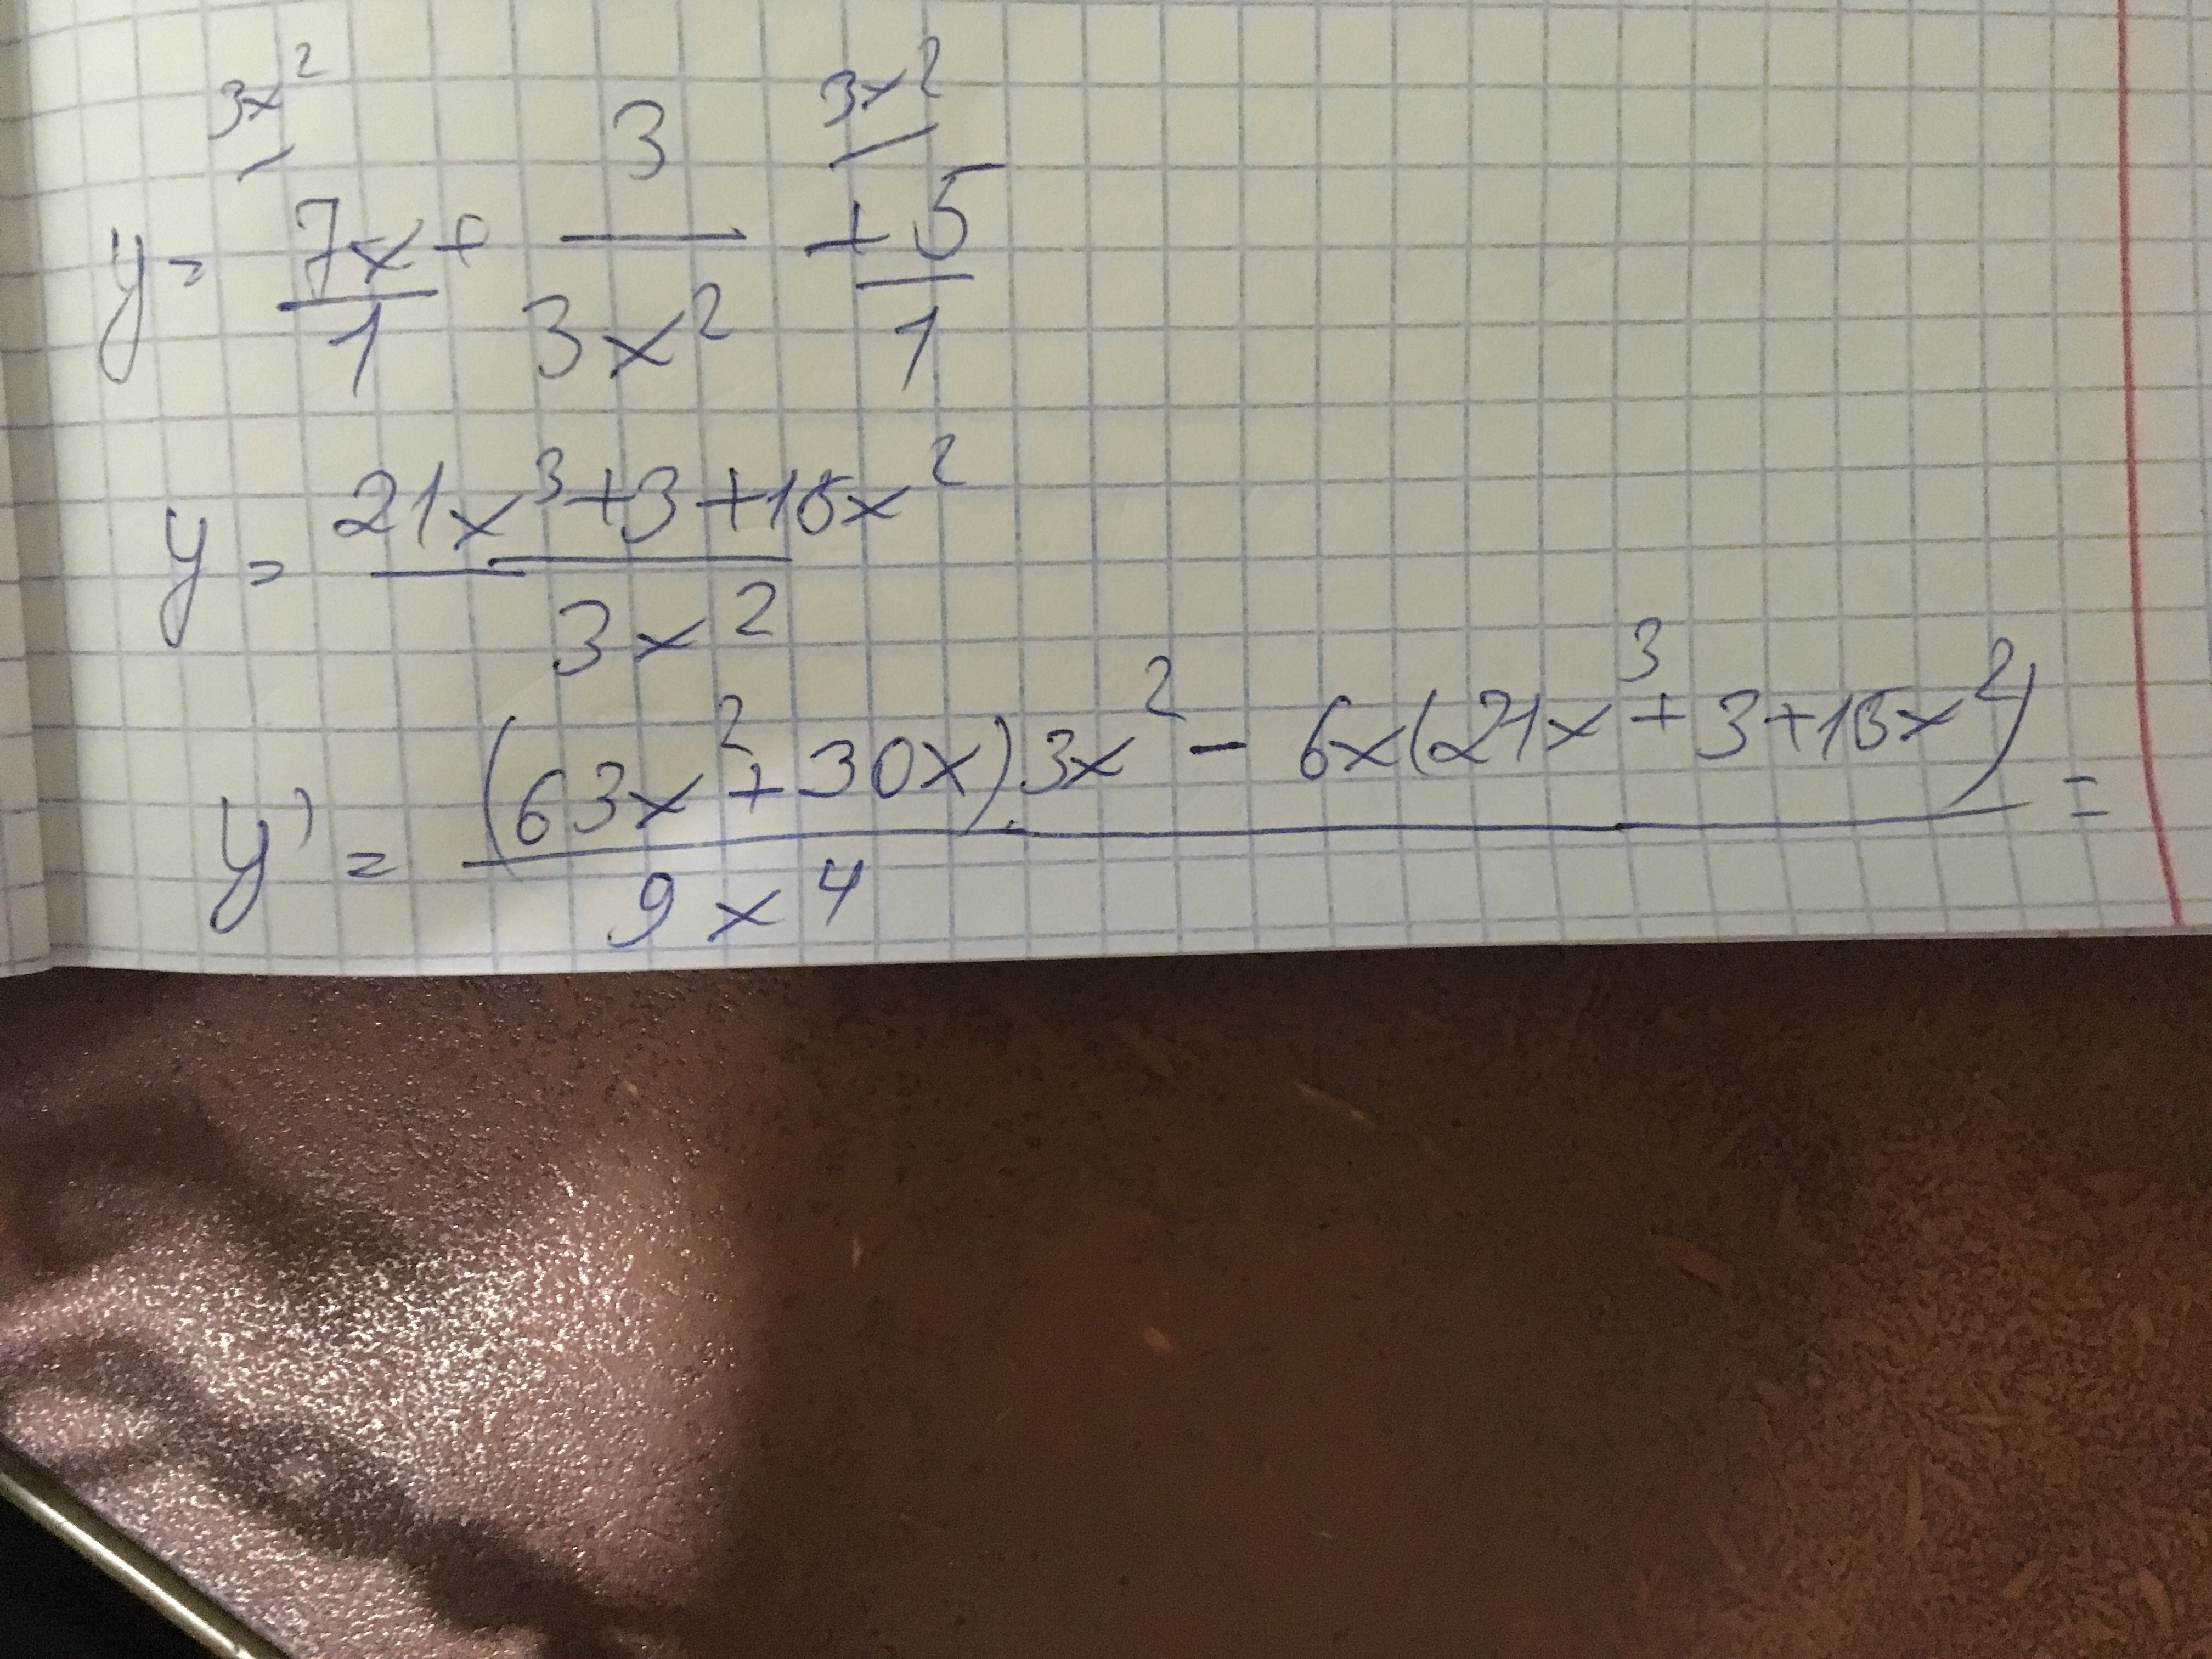 3x² 3 3x²
y = 7x/1 + 3/3x² + 5/1
y = (21x³+3+15x²)/3x²
y' = ((63x²+30x)·3x² - 6x(21x³+3+15x²))/9x⁴ =